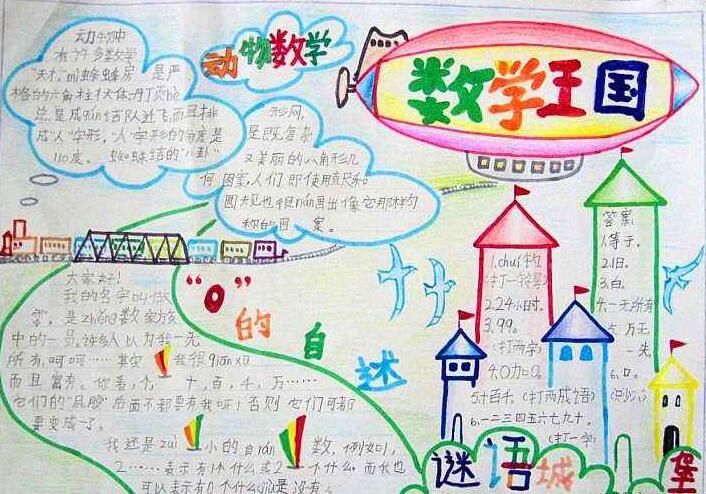 数学王国
动物数学
动物中
有许多数学
天才。mì蜂蜂房是严
格的六角柱状体。丹顶hè
总是成qún结队迁飞，而且排
成"人"字形，"人"字形的角度是
110度。蜘蛛结的"八卦"
形网，
是既复杂
又美丽的八角形几
何图案，人们即使用直尺和
圆规也很nán画出像它那样匀
称的图案。
"0"的自述
大家好！
我的名字叫
零，是zhěng数家族
中的一员。许多人以为我一无
所有，呵呵……其实我很qiān xū
而且富有。你看，个、十、百、千、万……
它们的"屁股"后面不都要有我呀！否则它们可都
要变成了。
我还是zuì小的自rán数，例如1，
2……表示有1个什么或2个什么，而我也
可以表示有0个什么jiù是没有。
谜语城堡
2.24小时。
3.99。
(打两字)
5.十百千(打两成语)
6.一二三四五六七九十。
(打一字)
答案：
1.等于。
2.1日。
3.白。
4.一无所有
5.万无
一失
6.口。